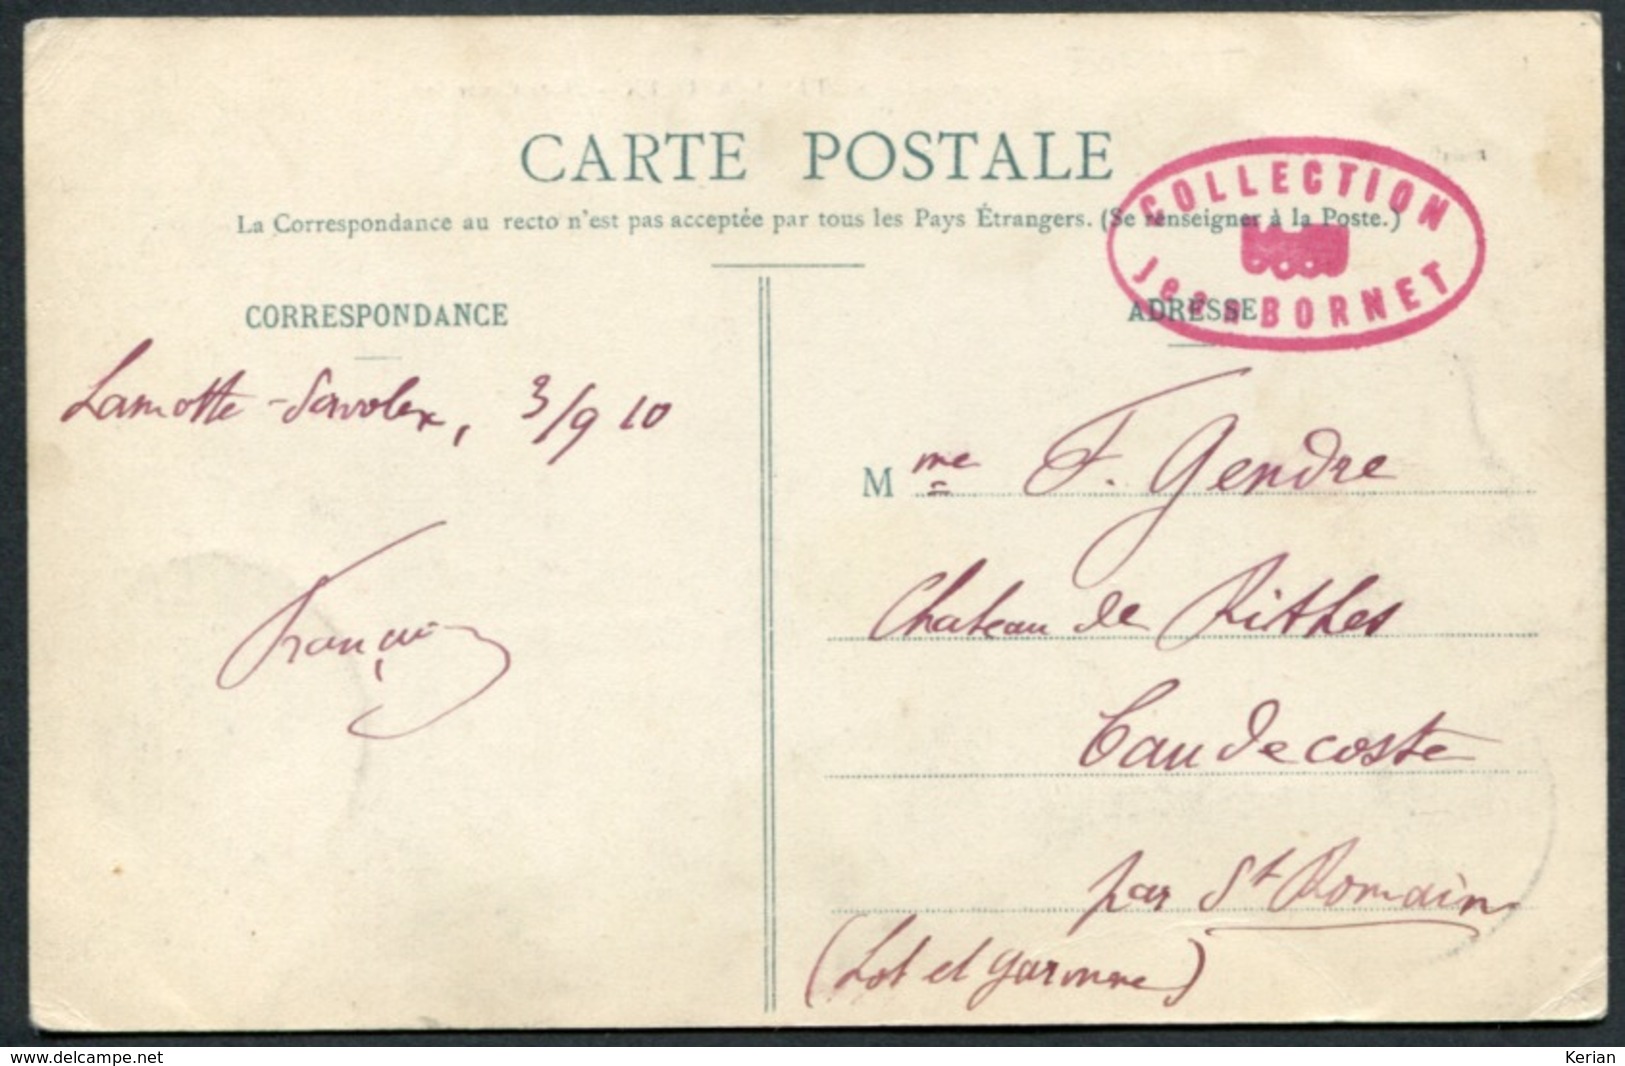 CARTE POSTALE
La Correspondance au recto n'est pas acceptée par tous les Pays Étrangers. (Se renseigner à la Poste.)
COLLECTION
Jean BORNET
CORRESPONDANCE
Lamotte-Servolex, 3/9 10
François
ADRESSE
Mme F. Gendre
Chateau de
Caudecoste
par St Romain
(Lot et Garonne)
www.delcampe.net
Kerian